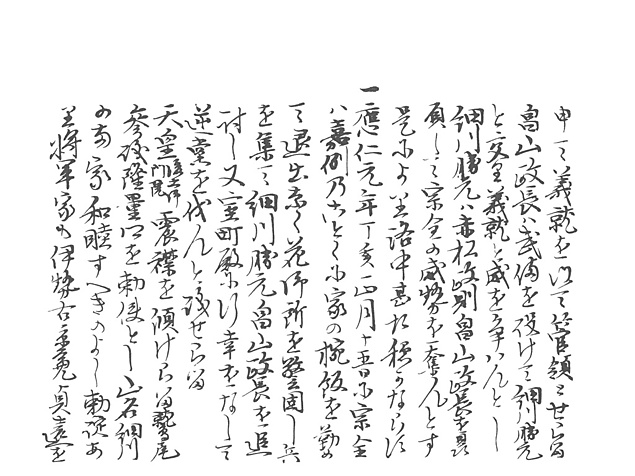 申て義就を以て管領とせらる
畠山政長ハ武備を設けて細川勝元
と交り義就と威を争ハんとし
細川勝元ハ赤松政則畠山政長を
して宗全の威勢を奪んとす
是により洛中甚た穏かならす
一應仁元年丁亥正月十五日宗全
ハ嘉例のことく家の椀飯を勤め
て退出し花御所を警固し兵
を集て細川勝元畠山政長を追
討し又室町殿に行幸をなして
逆黨を伐んと議せらる
天皇後土御門院震襟を傾けらる鷲尾
参議隆量を勅使とし山名細川
の両家和睦すへきのよし勅諚あ
り将軍家も伊勢右京亮貞遠を